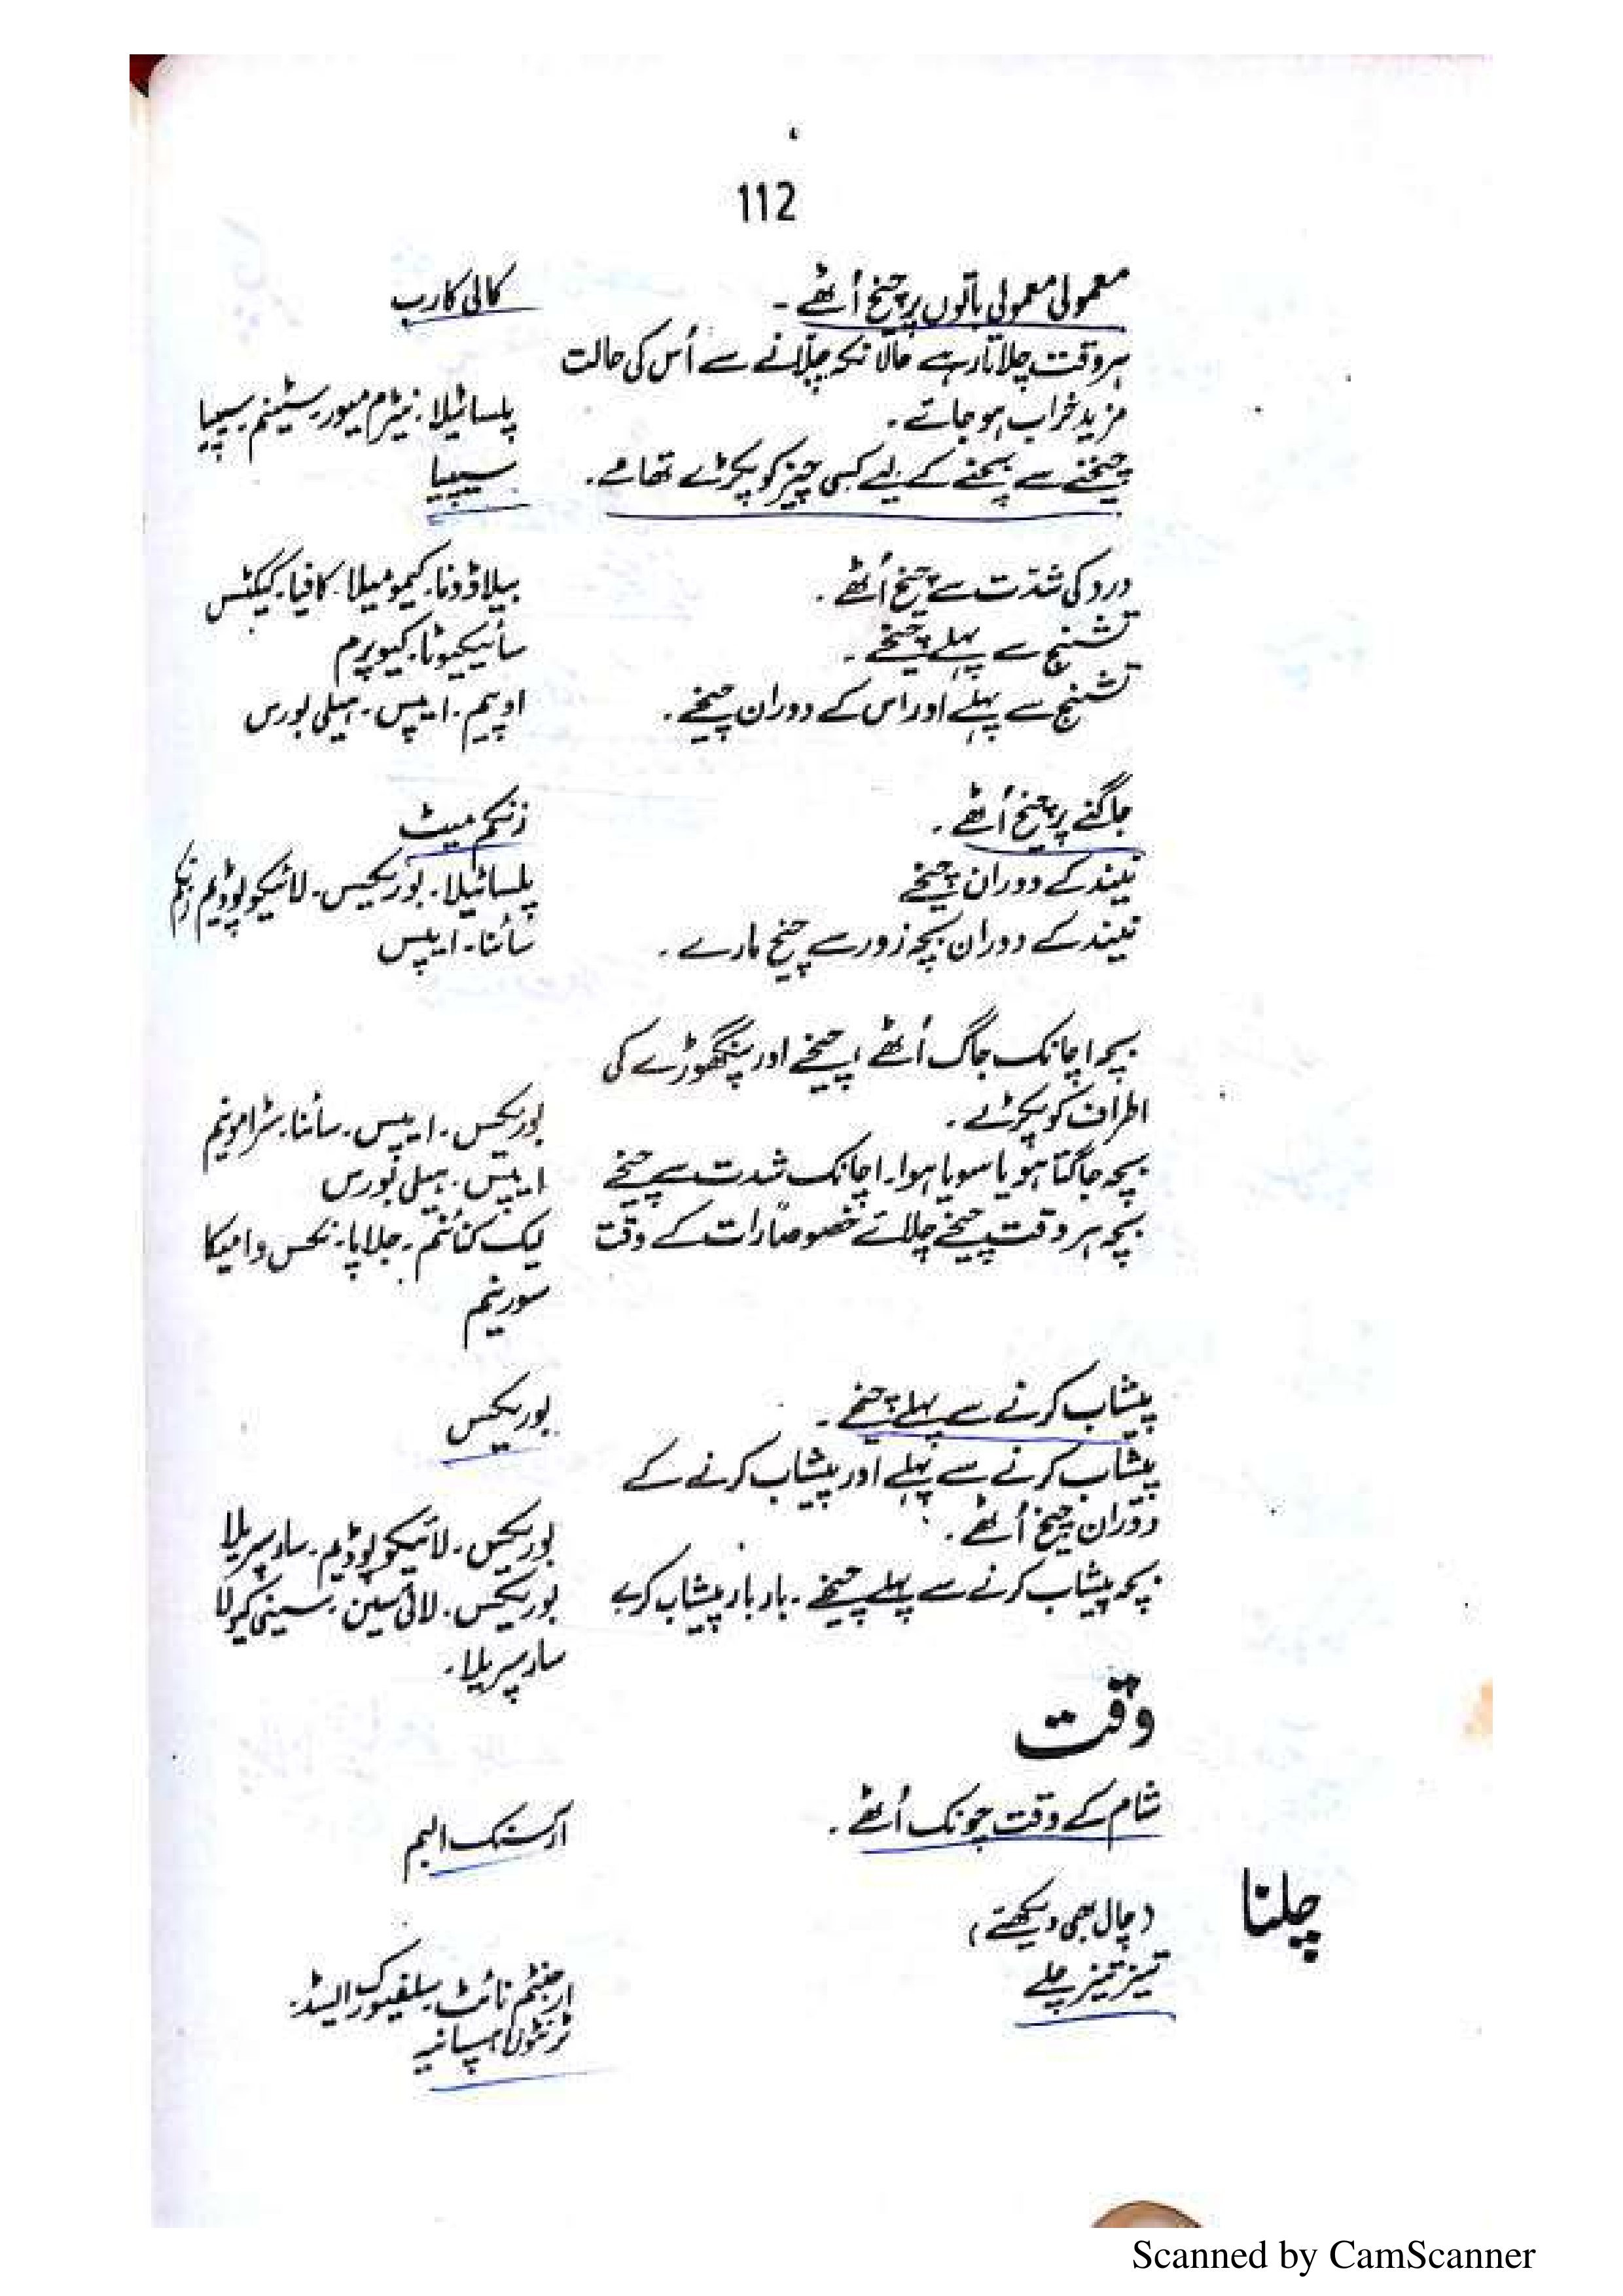 112
معمولی معمولی باتوں پر چیخ اُٹھے۔ کالی کارب
ہر وقت چلاتا رہے حالانکہ چلّانے سے اُس کی حالت
مزید خراب ہو جاتے۔ پلساٹیلا۔ نیٹرم میور۔ سٹینم۔ سیپیا
چیخنے سے بچنے کے لیے کسی چیز کو پکڑے تھامے۔ سیپیا
درد کی شدّت سے چیخ اُٹھے۔ بیلاڈونا۔ کیمومیلا۔ کافیا۔ کیکٹس
تشنج سے پہلے چیخے۔ سائیکیوٹا۔ کیوپرم
تشنج سے پہلے اور اس کے دوران چیخے۔ اوپیم۔ ایپس۔ ہیلی بورس
جاگنے پر چیخ اُٹھے۔ زنکم میٹ
نیند کے دوران چیخے پلساٹیلا۔ بوریکس۔ لائیکوپوڈیم زنکم
نیند کے دوران بچہ زور سے چیخ مارے۔ سائنا۔ ایپس
بچہ اچانک جاگ اُٹھے، چیخے اور پنگھوڑے کی
اطراف کو پکڑے۔ بوریکس۔ ایپس۔ سائنا۔ سٹرامونیم
بچہ جاگتا ہو یا سویا ہوا۔ اچانک شدت سے چیخے ایپس۔ ہیلی بورس
بچہ ہر وقت چیخے چلائے خصوصاً رات کے وقت لیک کنائنم۔ جلاپا۔ نکس وامیکا
سورینم
پیشاب کرنے سے پہلے چیخے۔ بوریکس
پیشاب کرنے سے پہلے اور پیشاب کرنے کے
دوران چیخ اُٹھے۔ بوریکس۔ لائیکوپوڈیم۔ سارسپریلا
بچہ پیشاب کرنے سے پہلے چیخے۔ بار بار پیشاب کرے بوریکس۔ لائی سین۔ سینی کیولا
سارسپریلا۔
وقت
شام کے وقت چونک اُٹھے۔ آرسنک البم
چلنا (چال بھی دیکھئے)
تیز تیز چلے ارجنٹم نائٹ۔ سلفیورک ایسڈ۔
ٹرنٹولا ہسپانیہ
Scanned by CamScanner